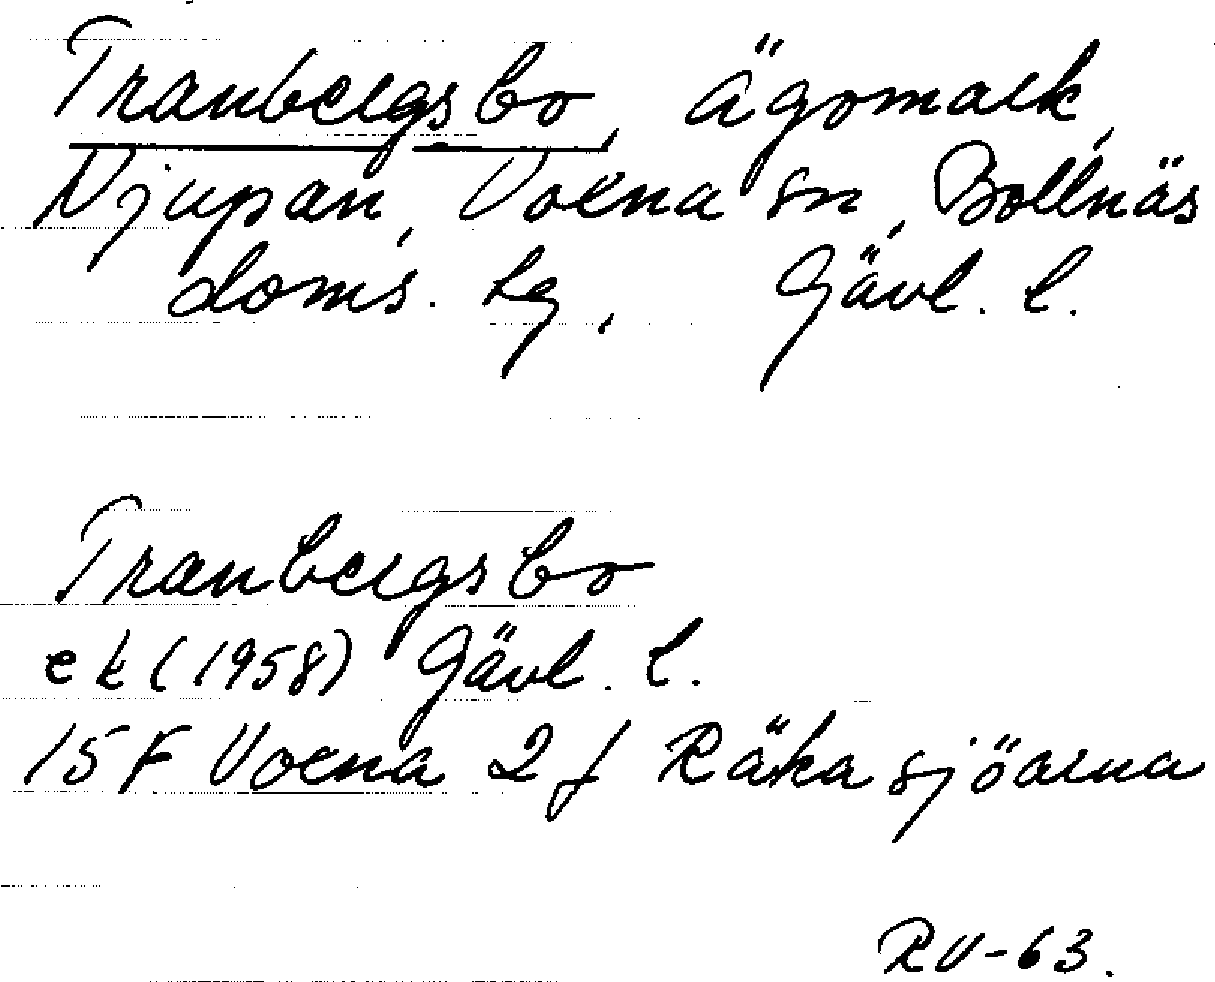 Tranbergsbo, ägomark,
Njupan, Voxna sn, Bollnäs
doms. hg, Gävl. l.
Tranbergsbo
ek (1958) Gävl. l.
15 F Voxna 2 f Räka sjöarna
RV-63.